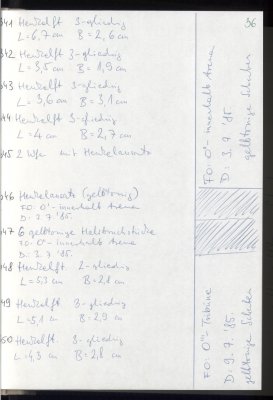 36
041 Henkelfr. 3-gliedrig
L = 6,7 cm B = 2,6 cm
042 Henkelfr. 3-gliedrig
L = 3,5 cm B = 1,9 cm
043 Henkelfr. 3-gliedrig
L = 3,6 cm B = 3,1 cm
044 Henkelfr. 3-gliedrig
L = 4 cm B = 2,7 cm
045 2 Wfr. mit Henkelansatz
046 Henkelansatz (gelbtonig)
FO: O"-innerhalb Arena
D: 3.7.'85.
047 6 gelbtonige Halsbruchstücke
FO: O"-innerhalb Arena
D: 3.7.'85.
048 Henkelfr. 2-gliedrig
L = 5,3 cm B = 2,8 cm
049 Henkelfr. 3-gliedrig
L = 5,1 cm B = 2,9 cm
050 Henkelfr. 3-gliedrig
L = 4,3 cm B = 2,8 cm
FO: O"-innerhalb Arena
D: 3.7.'85.
gelbtonige Scherben
FO: O"-Tribüne
D: 9.7.'85.
gelbtonige Scherben